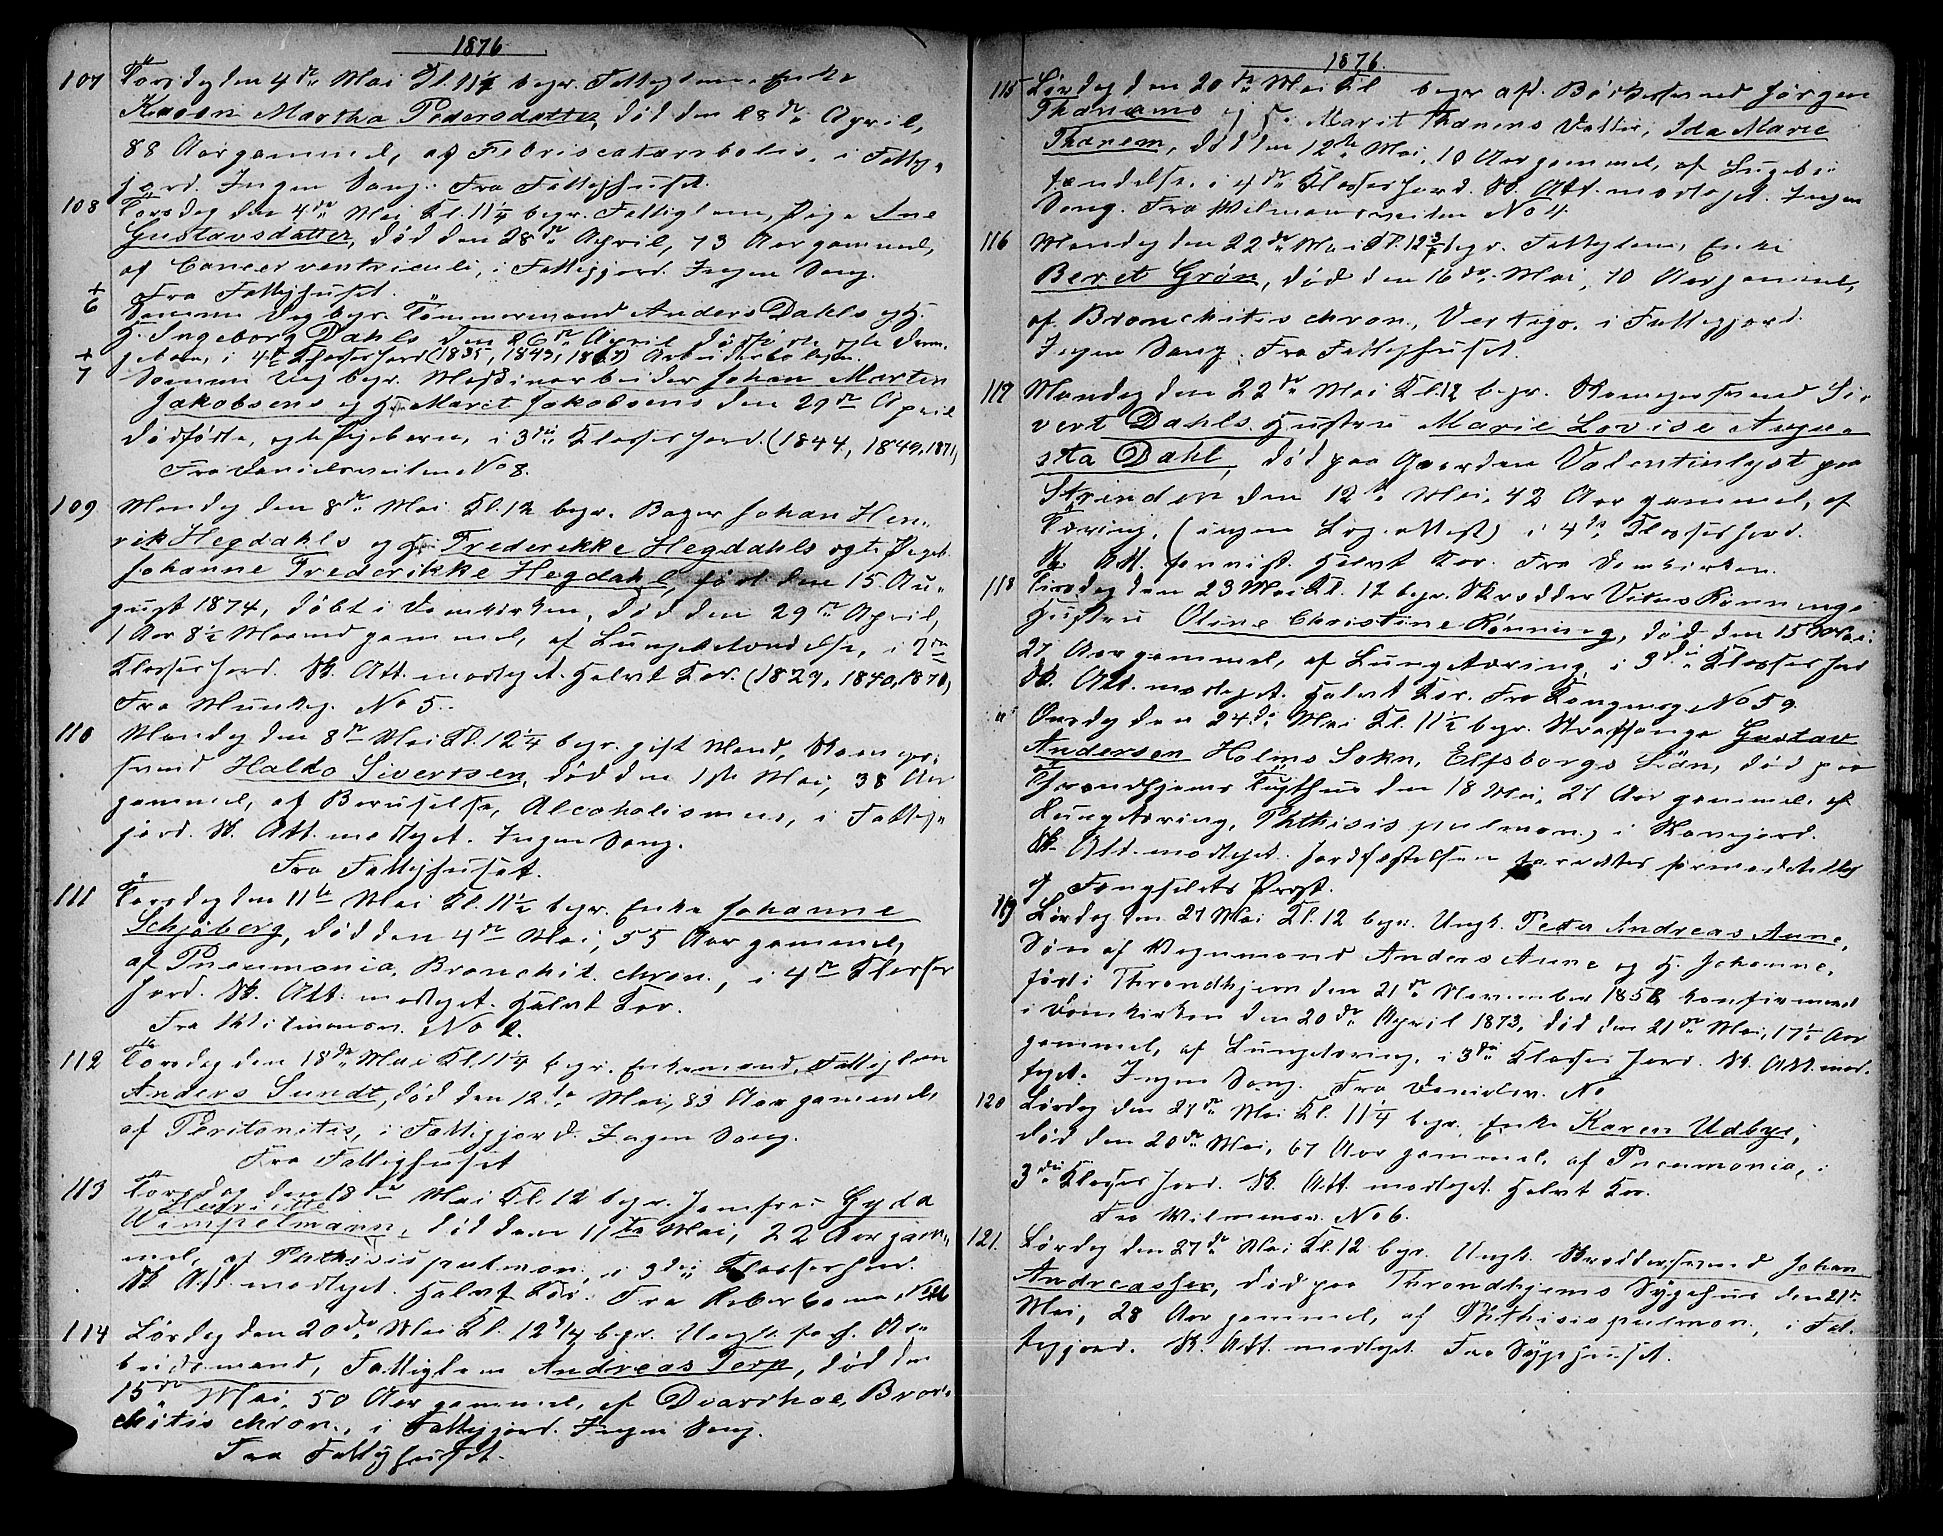 1876
107 Torsdag den 4de Mai Kl. 11¼ begr. Fattiglem, Enke
Karen Martha Pedersdatter, død den 28de April,
88 Aar gammel, af Febris catarrhalis, i Fattig-
jord. Ingen Sang. Fra Fattighuset.
108 Torsdag den 4de Mai Kl. 11¼ begr. Fattiglem, Pige Ane
Gustavsdatter, død den 28de April, 73 Aar gammel,
af Cancer ventriculi, i Fattigjord. Ingen Sang.
Fra Fattighuset.
+ 6 Samme Dag begr. Tømmermand Anders Dahls og H.
H. Ingeborg Dahls den 26de April dødfødte ægte Dren-
gebarn, i 4de Klasses Jord (1835, 1843, ) Arbeider
+ 7 Samme Dag begr. Maskinarbeider Johan Martin
Jakobsens og H. Marit Jakobsens den 29de April
dødfødte, ægte Pigebarn, i 3die Klasses Jord. (1844, 1849, 1871)
Fra Danielsveiten No 8.
109 Mandag den 8de Mai Kl. 12 begr. Bager Johan Hen-
rik Hegdahls og H. Frederikke Hegdahls ægte Pigeb.
Johanne Frederikke Hegdahl, født den 15 Au-
gust 1874, døbt i Domkirken, død den 29de April,
1 Aar 8½ Maaned gammel, af Lungebetændelse, i 2den
Klasses Jord. Sk. Att. modtaget. Halvt Kor. (1829, 1840, 1870)
Fra Munkeg. No 5.
110 Mandag den 8de Mai Kl. 12¼ begr. gift Mand, Skomager-
svend Haldo Sivertsen, død den 1ste Mai, 38 Aar
gammel, af Beruselse, Alcoholismus, i Fattig-
jord. Sk. Att. modtaget. Ingen Sang.
Fra Fattighuset.
111 Torsdag den 11te Mai Kl. 11½ begr. Enke Johanne
Schjøberg, død den 4de Mai, 55 Aar gammel,
af Pneumonia, Bronchit. chron., i 4de Klasses
Jord. Sk. Att. modtaget. Halvt Kor.
Fra Wilmansv. No 2.
112 Torsdag den 18de Mai Kl. 11¼ begr. Enkemand, Fattiglem
Anders Sundt, død den 12te Mai, 83 Aar gammel,
af Peritonitis, i Fattigjord. Ingen Sang.
Fra Fattighuset
113 Torsdag den 18de Mai Kl. 12 begr. Jomfru Gyda
Henriette
Wimpelmann, død den 11te Mai, 22 Aar gam-
mel, af Phthisis pulmon., i 3die Klasses Jord.
Sk. Att. modtaget. Halvt Kor. Fra No
114 Lørdag den 20de Mai Kl. 12¼ begr. Ungk. forh. Ar-
beidsmand, Fattiglem Andreas Torp, død den
15de Mai, 50 Aar gammel, af Diarrhoe, Bron-
chitis chron., i Fattigjord. Ingen Sang.
Fra Fattighuset.
1876.
115 Lørdag den 20de Mai Kl begr. afd. Bødkersvend Jørgen
Thanems og H. Marit Thanems Datter, Ida Marie
Thanem, død den 12te Mai, 10 Aar gammel, af Lungebe-
tændelse, i 4de Klasses Jord. Sk. Att. modtaget. Ingen
Sang. Fra Wilmansveiten No 4.
116 Mandag den 22de Mai Kl. 12¾ begr. Fattiglem, Enke
Beret Grøn, død den 16de Mai, 70 Aar gammel,
af Bronchitis chron., Vertigo, i Fattigjord.
Ingen Sang. Fra Fattighuset.
117 Mandag den 22de Mai Kl. 12 begr. Skomagersvend Si-
vert Dahls Hustru Marie Lovise Augu-
sta Dahl, død paa Gaarden Valentinlyst paa
Strinden den 12te Mai, 42 Aar gammel, af
Tæring, (ingen Lægeattest) i 4de Klasses Jord.
Sk. Att. forevist. Halvt Kor. Fra Domkirken.
118 Tirsdag den 23 Mai Kl. 12 begr. Skrædder Vitus Rønnings
Hustru Oline Christine Rønning, død den 15 Mai,
27 Aar gammel, af Lungetæring, i 3die Klasses Jord
Sk. Att. modtaget. Halvt Kor. Fra Kongensg. No 59
Onsdag den 24de Mai Kl. 11½ begr. Straffange Gustav
Andersen Holms Sokn, Elfsborgs Län, død paa
Throndhjems Tugthus den 18 Mai, 27 Aar gammel, af
Lungetæring, Phthisis pulmon., i Slavejord.
Sk. Att. modtaget. Jordfæstelsen forrettes formedelst
af Fængselets Prest.
119 Lørdag den 27 Mai Kl. 12 begr. Ungk. Peder Andreas Aune,
Søn af Vognmand Anders Aune og H. Johanne,
født i Throndhjem den 21de November 1858, konfirmeret
i Domkirken den 20de April 1873, død den 21de Mai, 17½ Aar
gammel, af Lungetæring, i 3die Klasses Jord. Sk. Att. mod-
taget. Ingen Sang. Fra Danielsv. No
120 Lørdag den 27de Mai Kl. 11¼ begr. Enke Karen Udbye,
død den 20de Mai, 67 Aar gammel, af Pneumonia, i
3die Klasses Jord. Sk. Att. modtaget. Halvt Kor.
Fra Wilmansv. No 6.
121. Lørdag den 27de Mai Kl. 12 begr. Ungk. Skræddersvend Johan
Andreassen, død paa Throndhjems Sygehus den 21de
Mai, 28 Aar gammel, af Phthisis pulmon., i Fat-
tigjord. Sk. Att. modtaget. Fra Sygehuset.